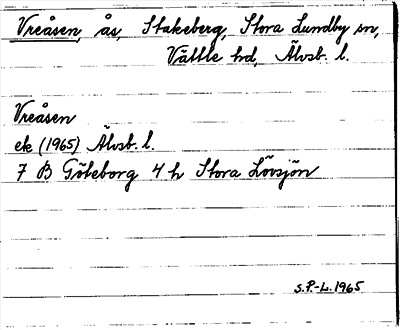 Vreåsen, ås, Stakeberg, Stora Lundby sn,
Vättle hd, Älvsb. l.
Vreåsen
ek (1965) Älvsb. l.
7 B Göteborg 4 h Stora Lövsjön
S.P.-L. 1965